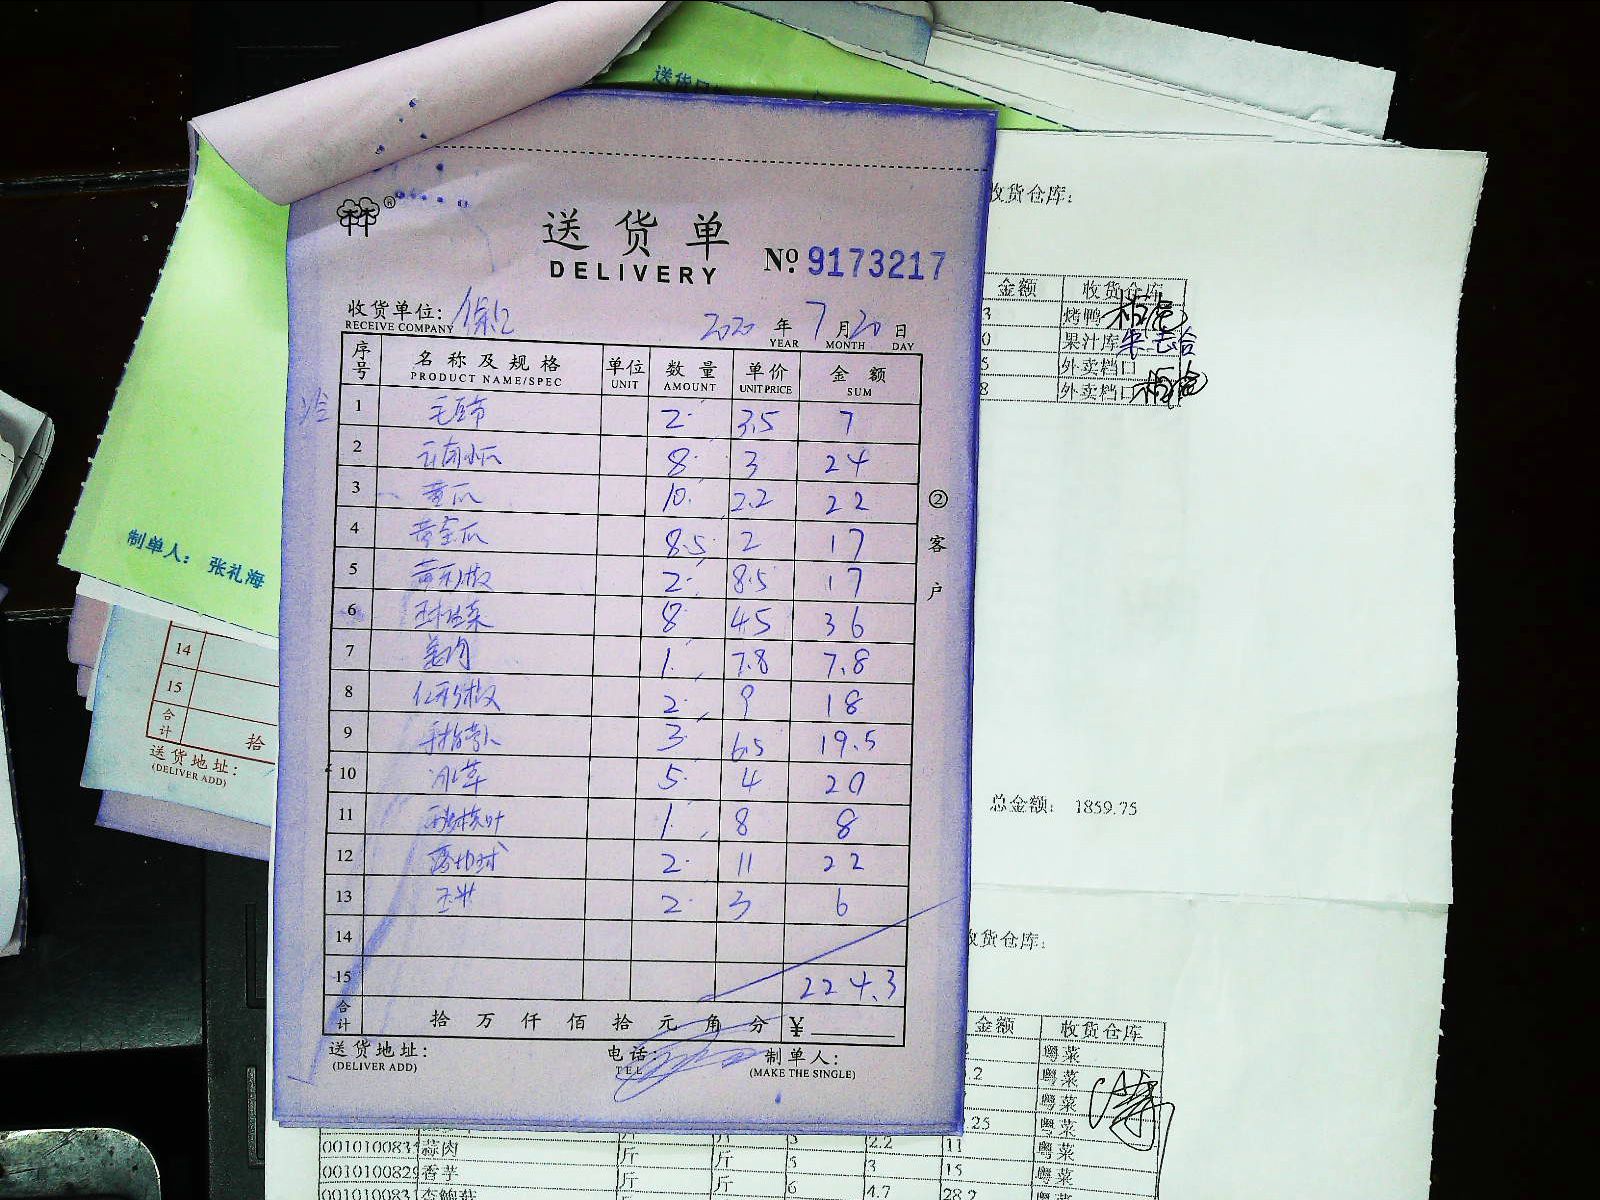 送货日
收货仓库:
送货单
DELIVERY
No. 9173217
收货单位:
RECEIVE COMPANY
2020 年 7 月 20 日
YEAR MONTH DAY
序号 名称及规格 单位 数量 单价 金额
PRODUCT NAME/SPEC UNIT AMOUNT UNIT PRICE SUM
1 毛豆节 2 3.5 7
2 云南小瓜 8 3 24
3 黄瓜 10 2.2 22
4 黄金瓜 8.5 2 17
5 黄彩椒 2 8.5 17
6 8 4.5 36
7 姜肉 1 7.8 7.8
8 红彩椒 2 9 18
9 手指萝卜 3 6.5 19.5
10 冰草 5 4 20
11 1 8 8
12 2 11 22
13 玉米 2 3 6
14
15 224.3
合计 拾 万 仟 佰 拾 元 角 分 ¥
送货地址: 电话: 制单人:
(DELIVER ADD) TEL (MAKE THE SINGLE)
② 客户
金额 收货仓库
3 烤鸭
0 果汁库
5 外卖档口
8 外卖档口
总金额: 1859.75
制单人: 张礼海
14
15
合计 拾
送货地址:
(DELIVER ADD)
收货仓库:
金额 收货仓库
粤菜
.2 粤菜
粤菜
.25 粤菜
001010083 蒜肉 斤 斤 3 2.2 11 粤菜
001010082 香芋 斤 斤 5 3 15 粤菜
001010083 斤 斤 6 4.7 28.2 粤菜